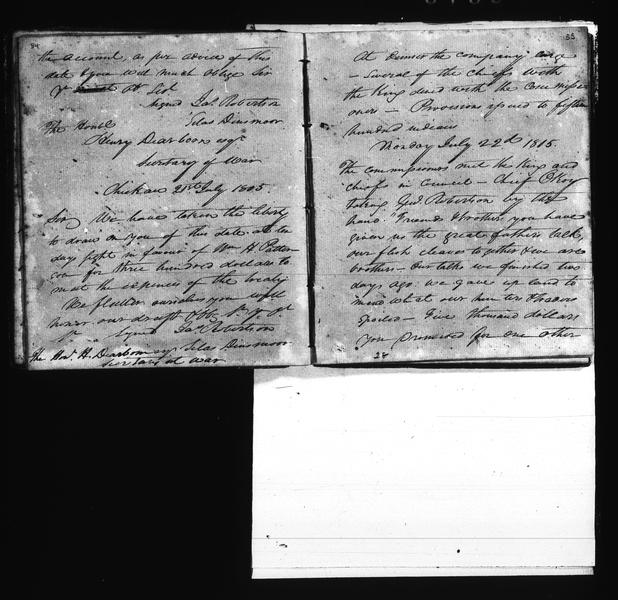 84
the account, as per advice of this
date & you will much oblige Sir
Yr At Svt
Signed Jas Robertson
Silas Dinsmoor
The Honble
Henry Dearborn esqr
Secretary of War
Chickasaw 21st July 1805.
Sir We have taken the liberty
to draw on you of this date at ten
days sight in favour of Wm H Patter
son for three hundred dollars to
meet the expences of the treaty
We flatter ourselves you will
honor our draft
Signd Jas Robertson
Silas Dinsmoor
The Honl. H. Dearborn esqr
Secretary at War
85
At dinner the company large
— Several of the chiefs with
the King dined with the commissi
oners — Provisions issued to fifteen
hundred indians
Monday July 22d 1805.
The commissioners met the King and
chiefs in Council — Chief OKoy
taking Genl Robertson by the
hand. Friends & brothers you have
given us the great fathers talk,
our flesh cleaves together & we are
brothers — Our talks we finished two
days ago. we gave up land to
mend what our hunters & traders
spoiled — Five thousand dollars
you promised for one other
28